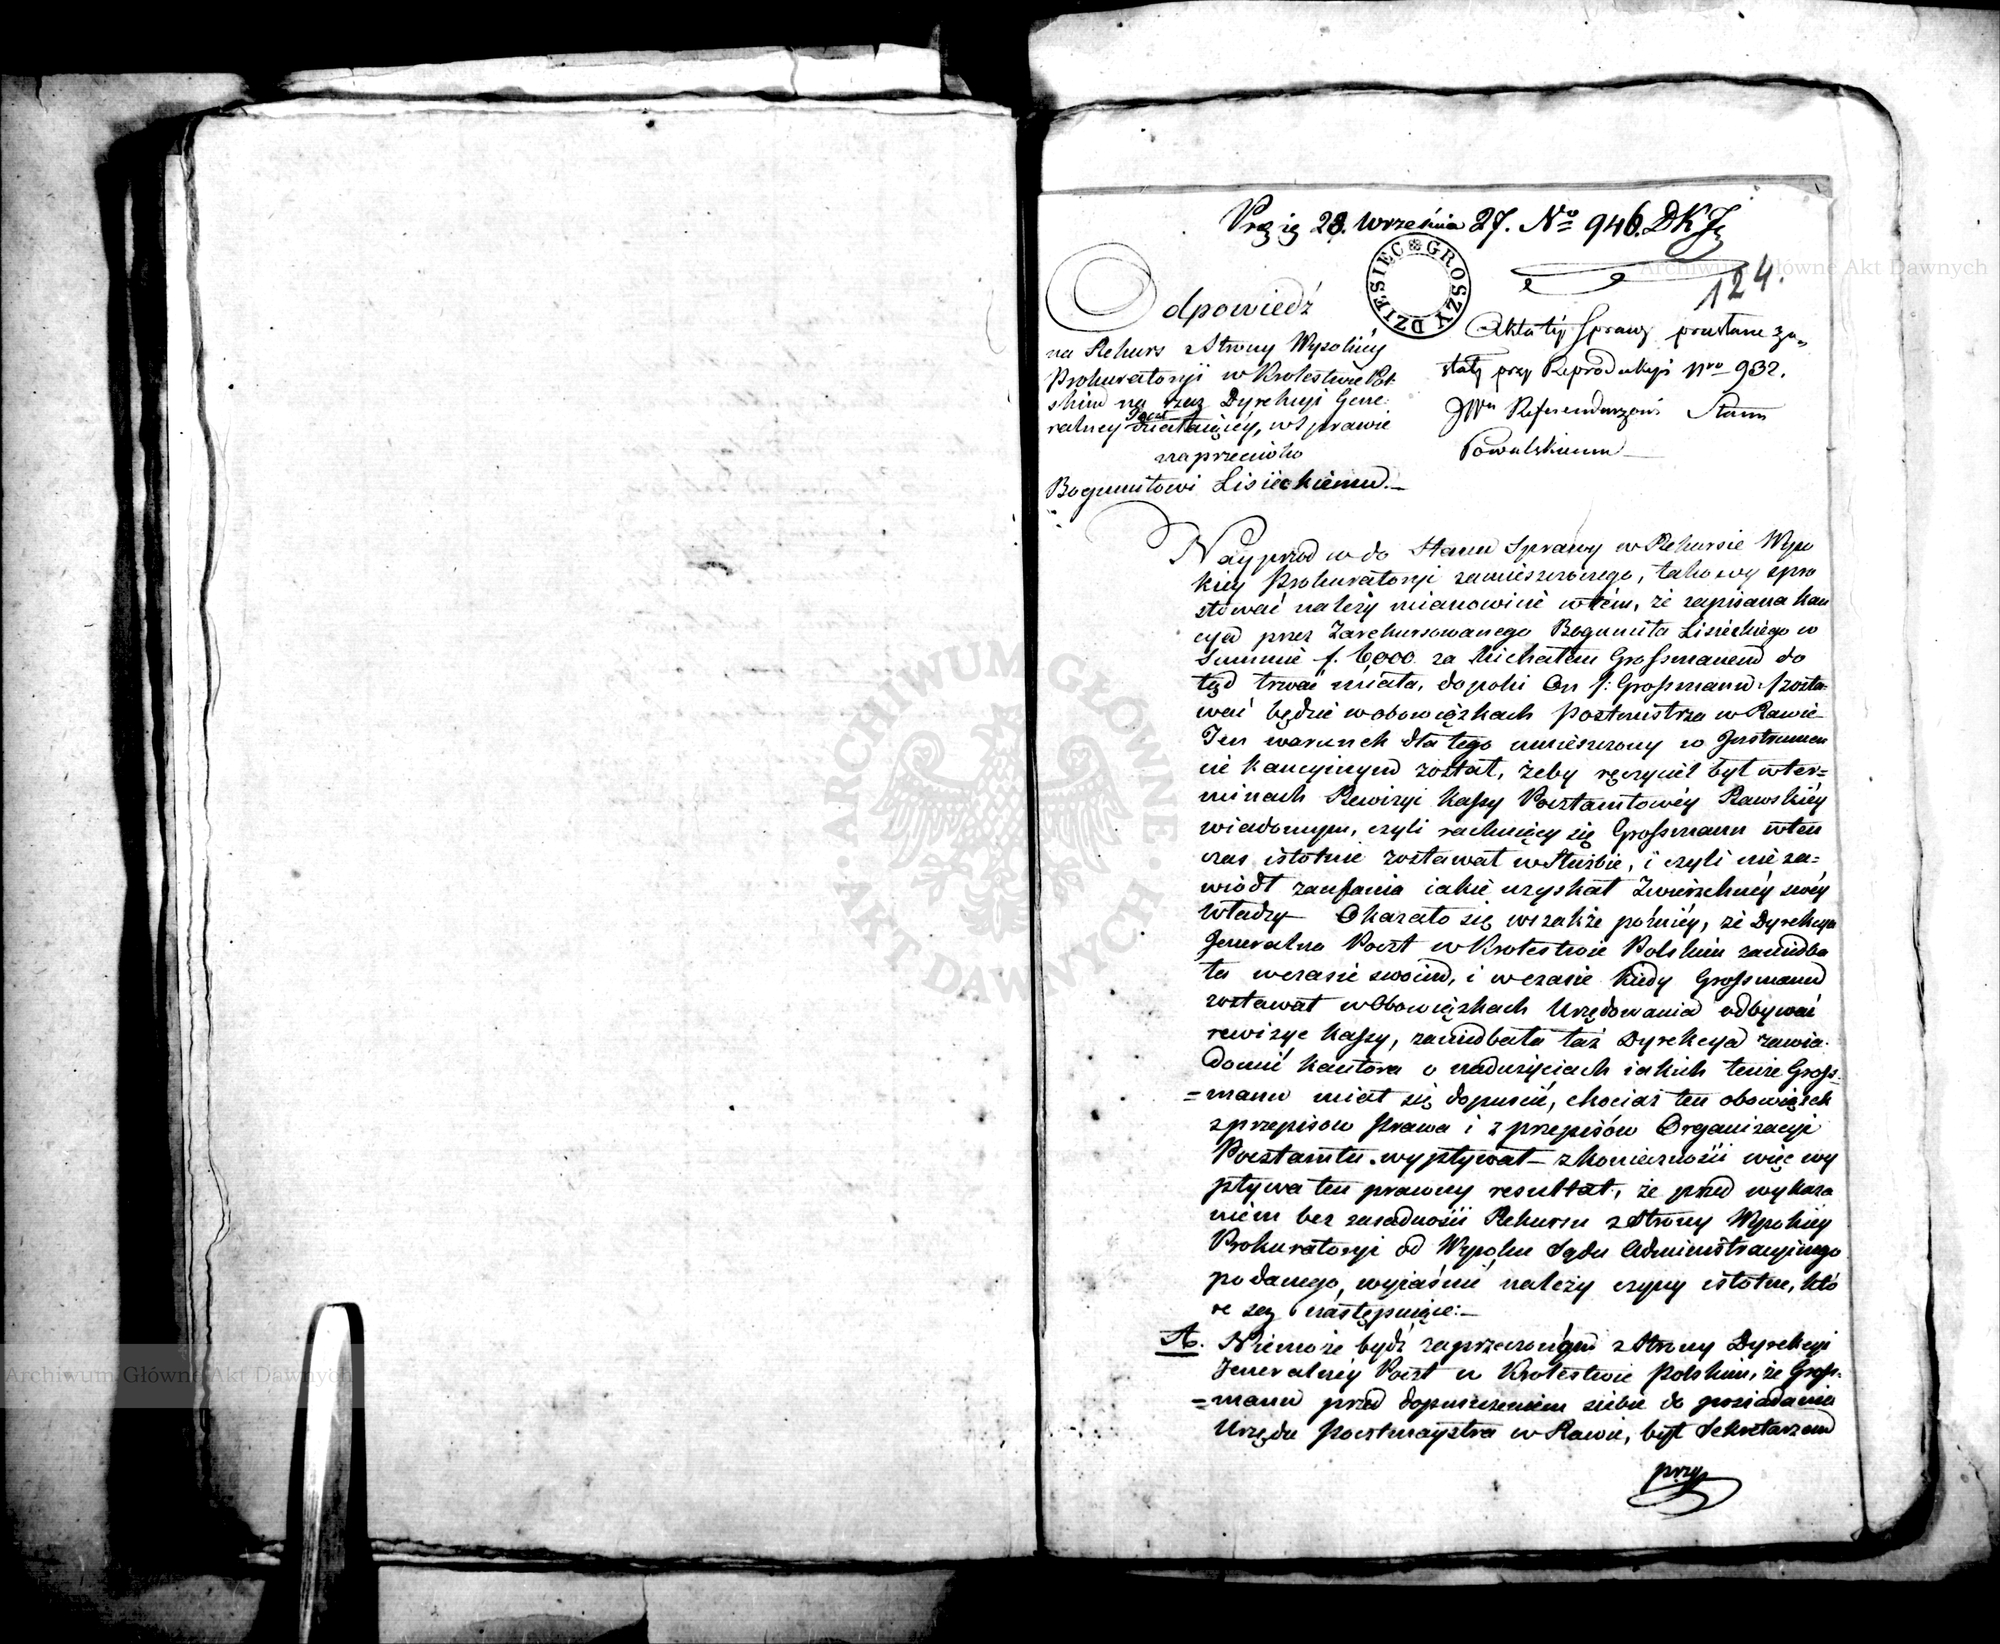 28. Września 27. No 946. DKJ
124.
DZIESIĘC GROSZY
Odpowiedź
na Rekurs z Strony Wysokiéy
Prokuratoryi w Krolestwie Pol-
skim na rzecz Dyrekcyi Gene-
ralney Poczt działaiącéy, w sprawie
naprzeciwko
Bogumiłowi Lisieckiemu.—
Akta téy Sprawy przesłane zo-
stały przy Reprodukcyi Nro 932.
JWu Referendarzowi Stanu
Nayprzod co do Stanu Sprawy w Rekursie Wyso
kiey Prokuratoryi zamieszczonego, takowy spro
stować należy mianowicie w tém, że zapisana kau
cya przez Zarekursowanego Bogumiła Lisieckiego w
Summie f. 6,000 za Michałem Grossmanem do
tąd trwać miała, dopoki On /: Grossmann :/ zosta-
wać będzie w obowiązkach Poztmistrza w Rawie
Ten warunek dla tego umieszczony w Instrumen
cie kaucyinym został, żeby ręczyciel był w ter=
minach Rewizyi Kassy Pocztamtowéy Rawskiéy
wiadomym, czyli rachuiący się Grossmann w ten
czas istotnie zostawał w Służbie, i czyli nie za=
wiódł zaufania iakie uzyskał Zwierzchnéy swéy
Władzy — Okazało się wszakże poźniéy, że Dyrekcya
Jeneralna Poczt w Krolestwie Polskim zaniedba
ła w czasie swoim, i w czasie kiedy Grossmann
zostawał w Obowiązkach Urzędowania odbywać
rewizye Kassy, zaniedbała taż Dyrekcya zawia-
domić kautora o nadużyciach iakich tenże Gross-
=mann miał się dopuścić, chociaż ten obowiązek
z przepisow Prawa i z przepisów Organizacyi
Pocztamtu wypływał — z konieczności więc wy
pływa ten prawny resultat, że przed wykaza
niem bez zasadności Rekursu z Strony Wysokiéy
Prokuratoryi od Wyroku Sądu Administracyinego
podanego, wyiaśnić należy czyny istotne, któ
re są następuiące:—
A. Niemoże bydź zaprzeczonym z Strony Dyrekcyi
Jeneralnéy Poczt w Krolestwie Polskim, że Gross-
=mann przed dopuszczeniem siebie do posiadania
Urzędu Poczmaystra w Rawie, był Sekretarzem
przy
Archiwum Główne Akt Dawnych
Archiwum Główne Akt Dawnych
ARCHIWUM GŁÓWNE AKT DAWNYCH